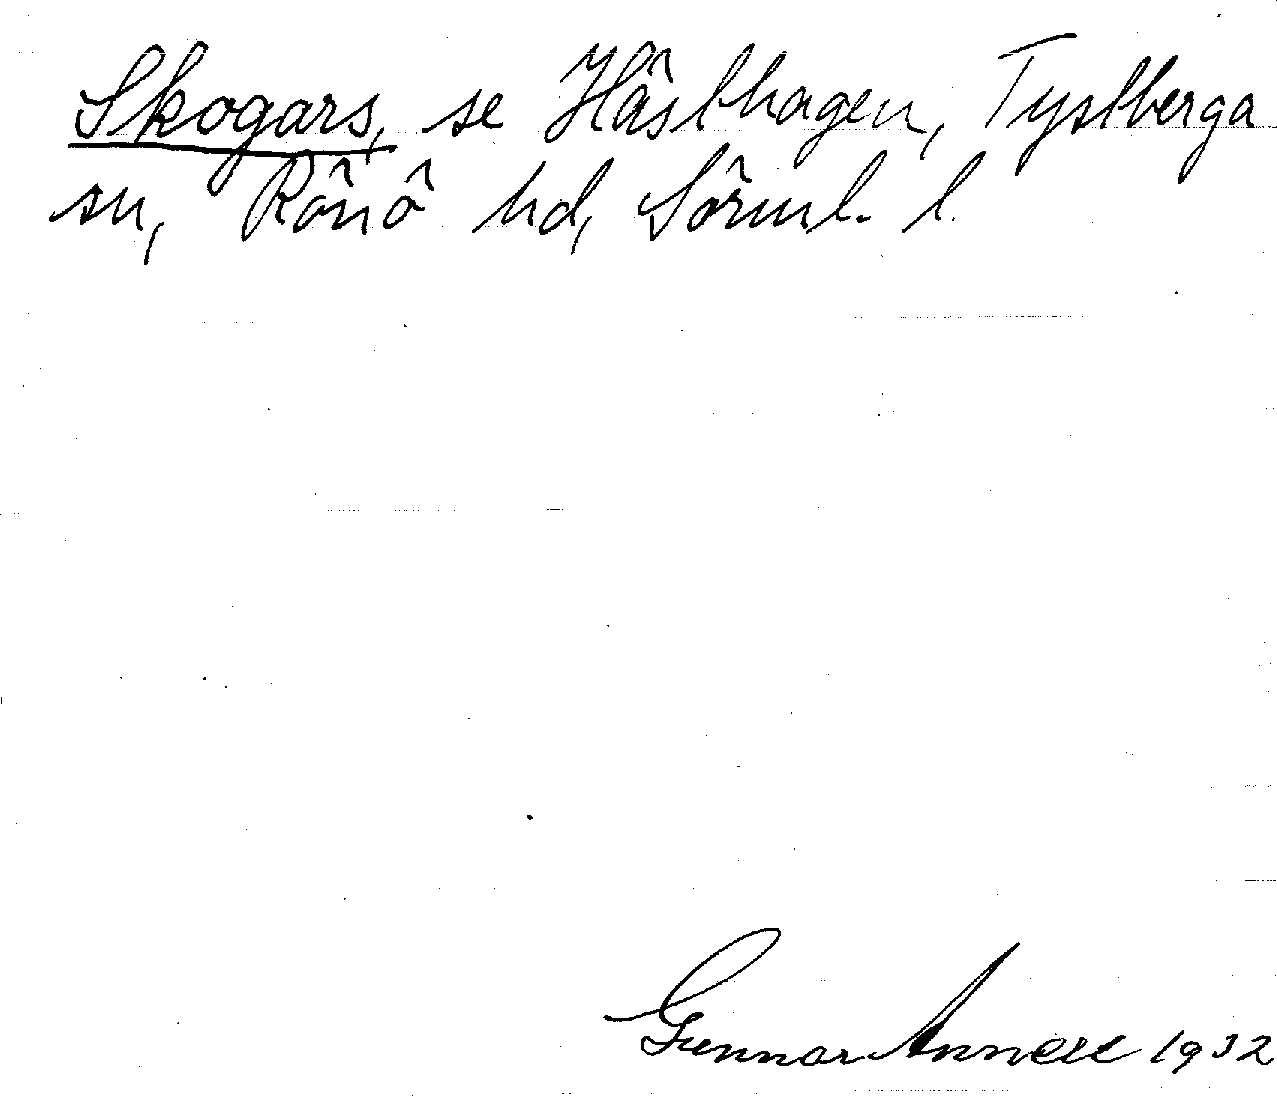 Skogars, se Hästhagen, Tystberga
sn, Rönö hd, Sörml. l.
Gunnar Annell 1932